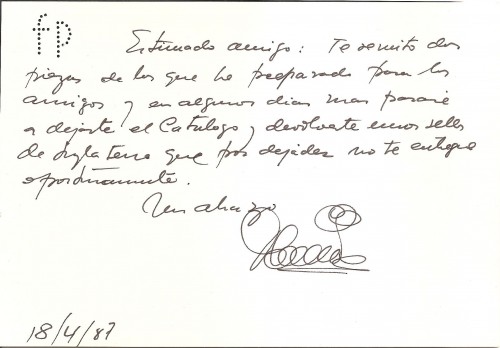 fp
Estimado amigo: Te remito dos
piezas de las que he preparado para los
amigos y en algunos dias mas pasaré
a dejarte el Catálogo y devolverte unos sellos
de Inglaterra que por dejadez no te entregué
oportunamente.
Un abrazo
18/4/87